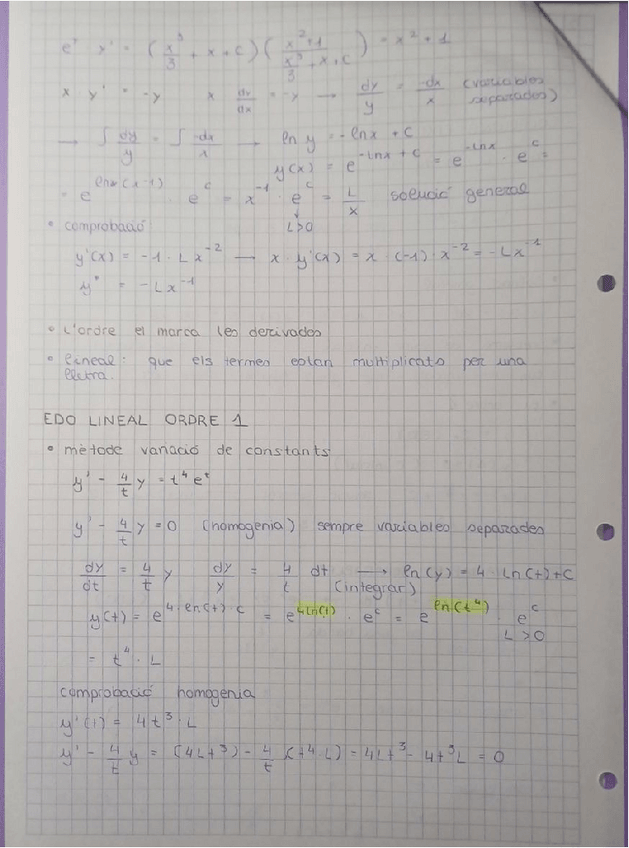 e^t y' = (x³/3 + x + c) ( (x²+1)/(x³/3 + x + c) ) = x² + 1
x y' = -y   x dy/dx = -y → dy/y = -dx/x (variables separades)
→ ∫ dy/y = ∫ -dx/x → ln y = -ln x + c
y(x) = e^(-lnx + c) = e^(-lnx) · e^c =
= e^(ln(x^-1)) e^c = x^-1 · e^c = L/x solució general
• comprobació L>0
y'(x) = -1 · L x^-2 — x · y'(x) = x · (-1) · x^-2 = -Lx^-1
y' = -Lx^-1
• L'ordre el marca les derivades
• lineal: que els termes estan multiplicats per una
lletra.
EDO LINEAL ORDRE 1
• mètode variació de constants
y' - 4/t y = t⁴ e^t
y' - 4/t y = 0 (homogenia) sempre variables separades
dy/dt = 4/t y   dy/y = 4/t dt → ln(y) = 4 · Ln(t) + C
(integrar)
y(t) = e^(4·ln(t)·c) = e^(4Ln(t)) · e^c = e^(ln(t⁴)) · e^c
L > 0
= t⁴ · L
comprobació homogenia
y'(t) = 4t³ · L
y' - 4/t y = (4Lt³) - 4/t (t⁴ L) = 4Lt³ - 4t³L = 0